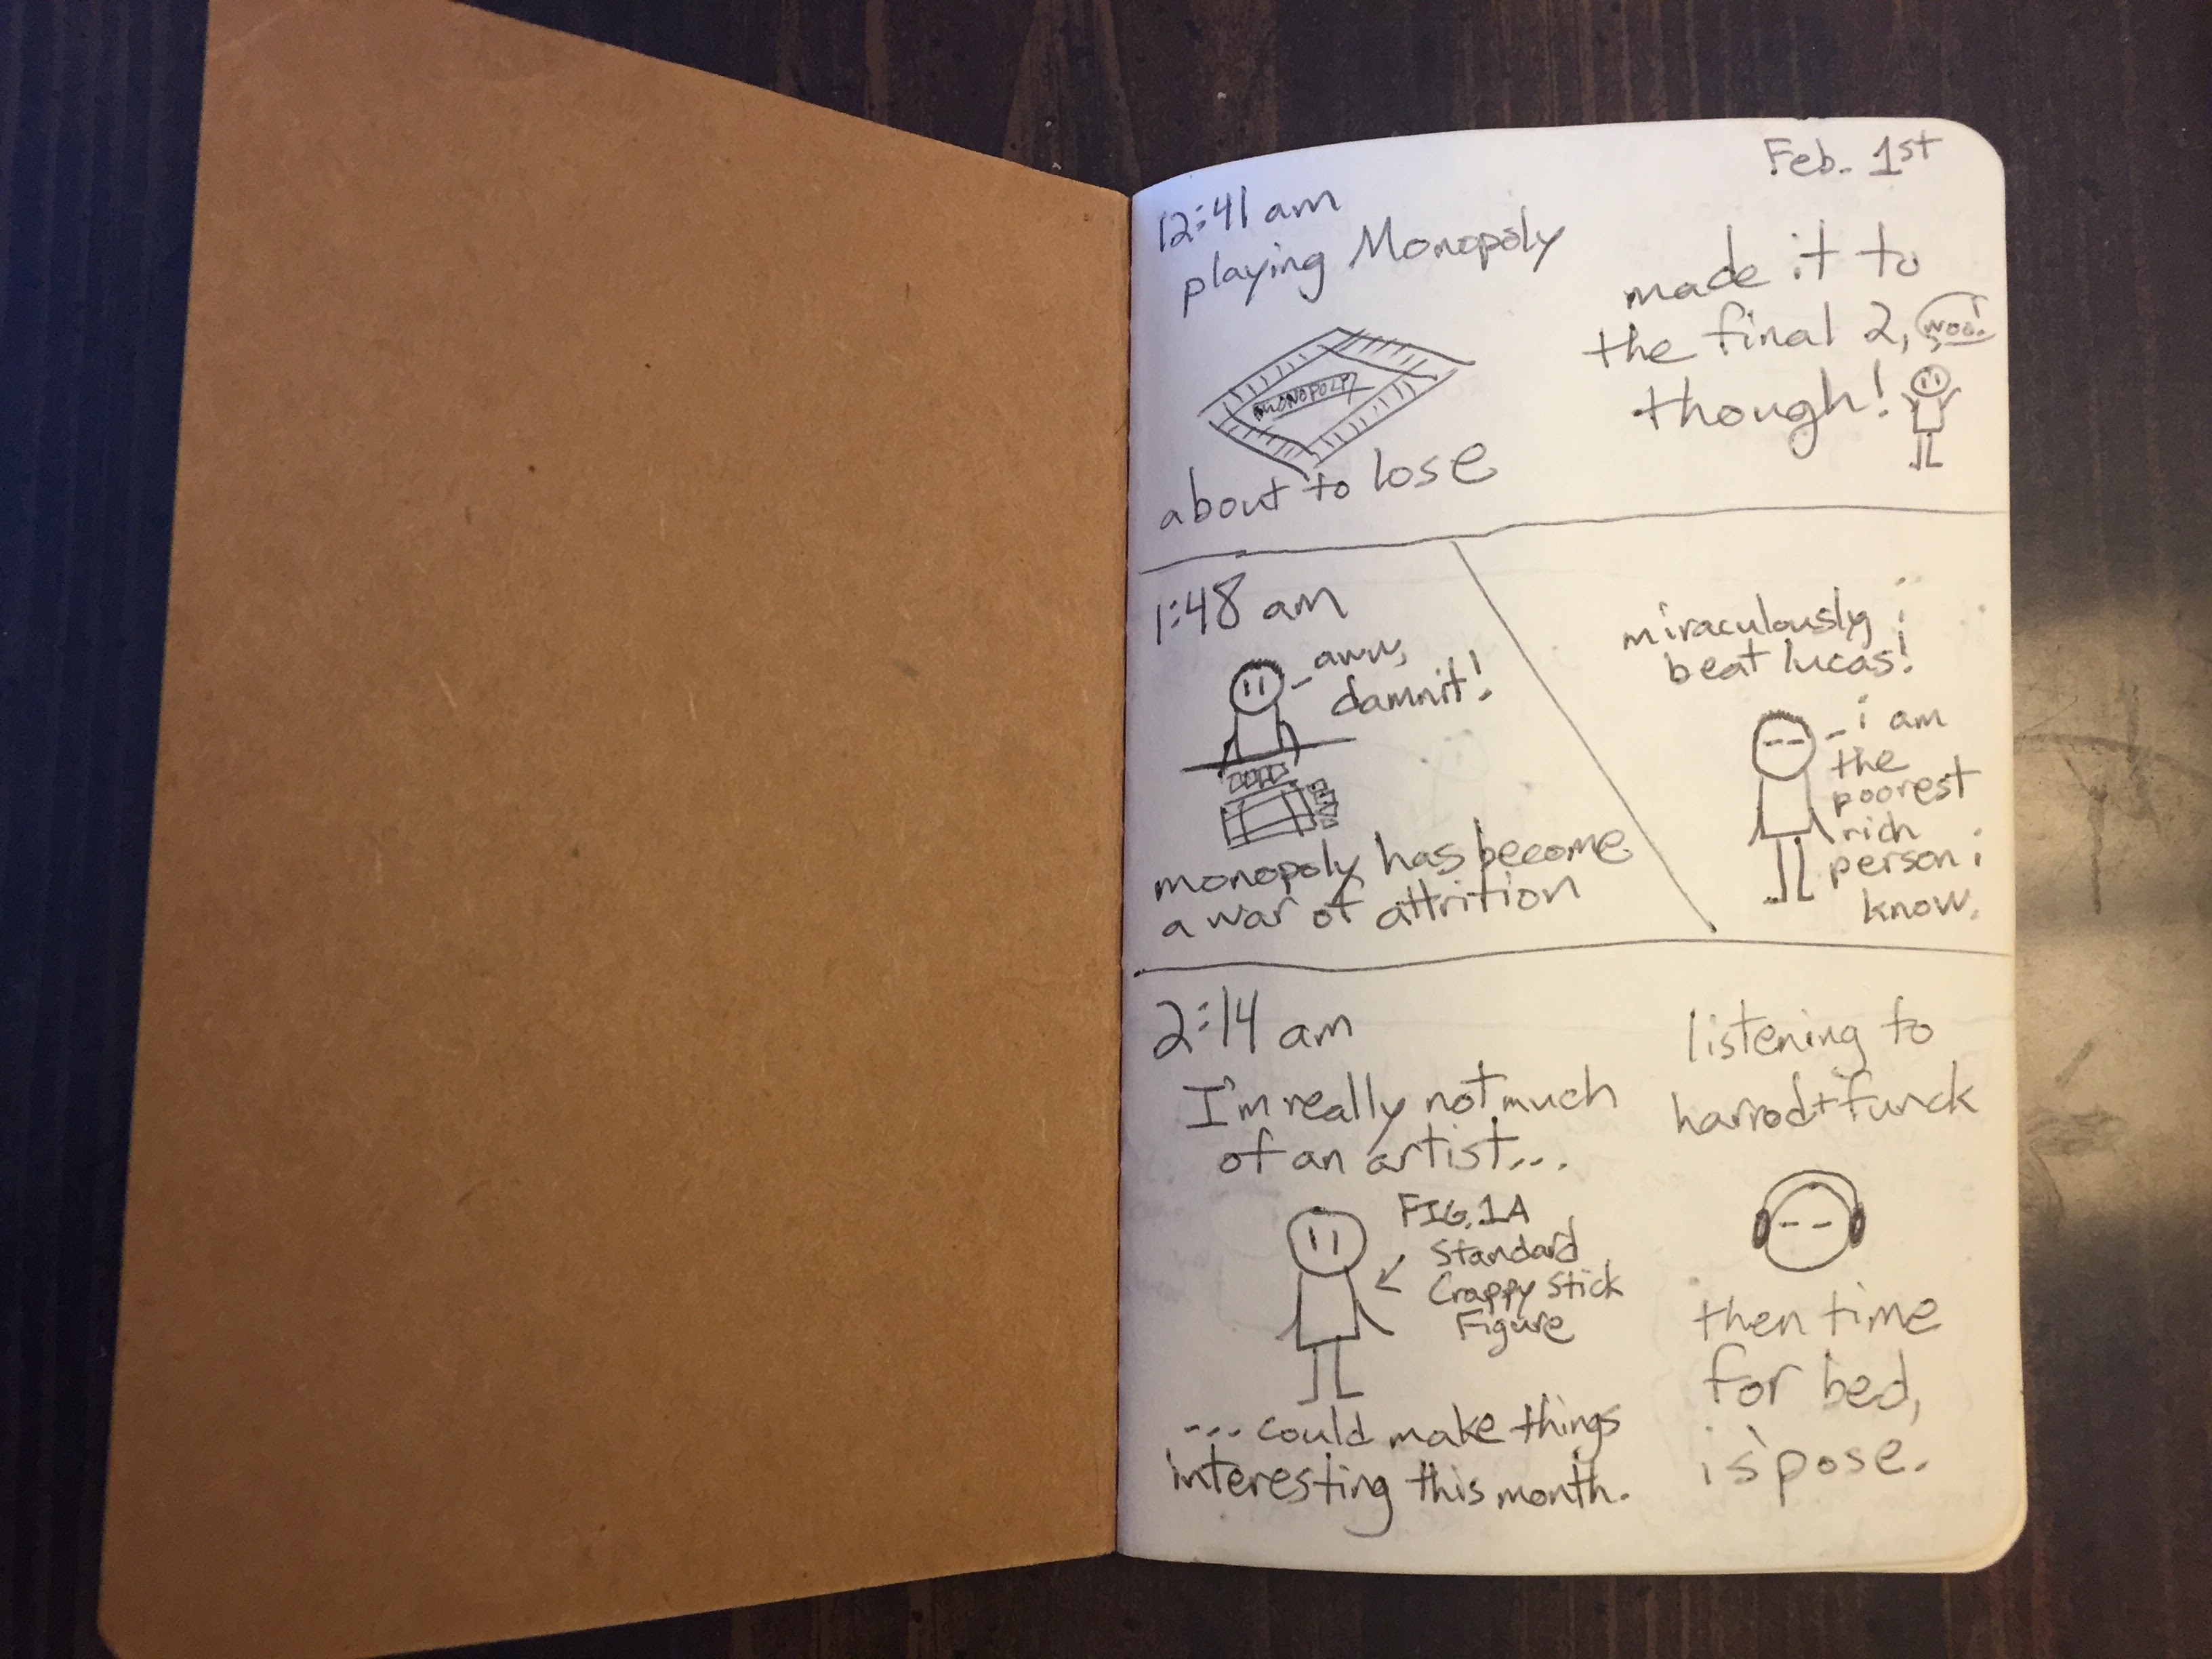 Feb. 1st
12:41 am
playing Monopoly
MONOPOLY
about to lose
made it to
the final 2,
though!
woo!
1:48 am
aww,
damnit!
monopoly has become
a war of attrition
miraculously i
beat lucas!
i am
the
poorest
rich
person i
know.
2:14 am
I'm really not much
of an artist...
FIG. 1A
Standard
Crappy Stick
Figure
... could make things
interesting this month.
listening to
harrod+funck
then time
for bed,
is'pose.